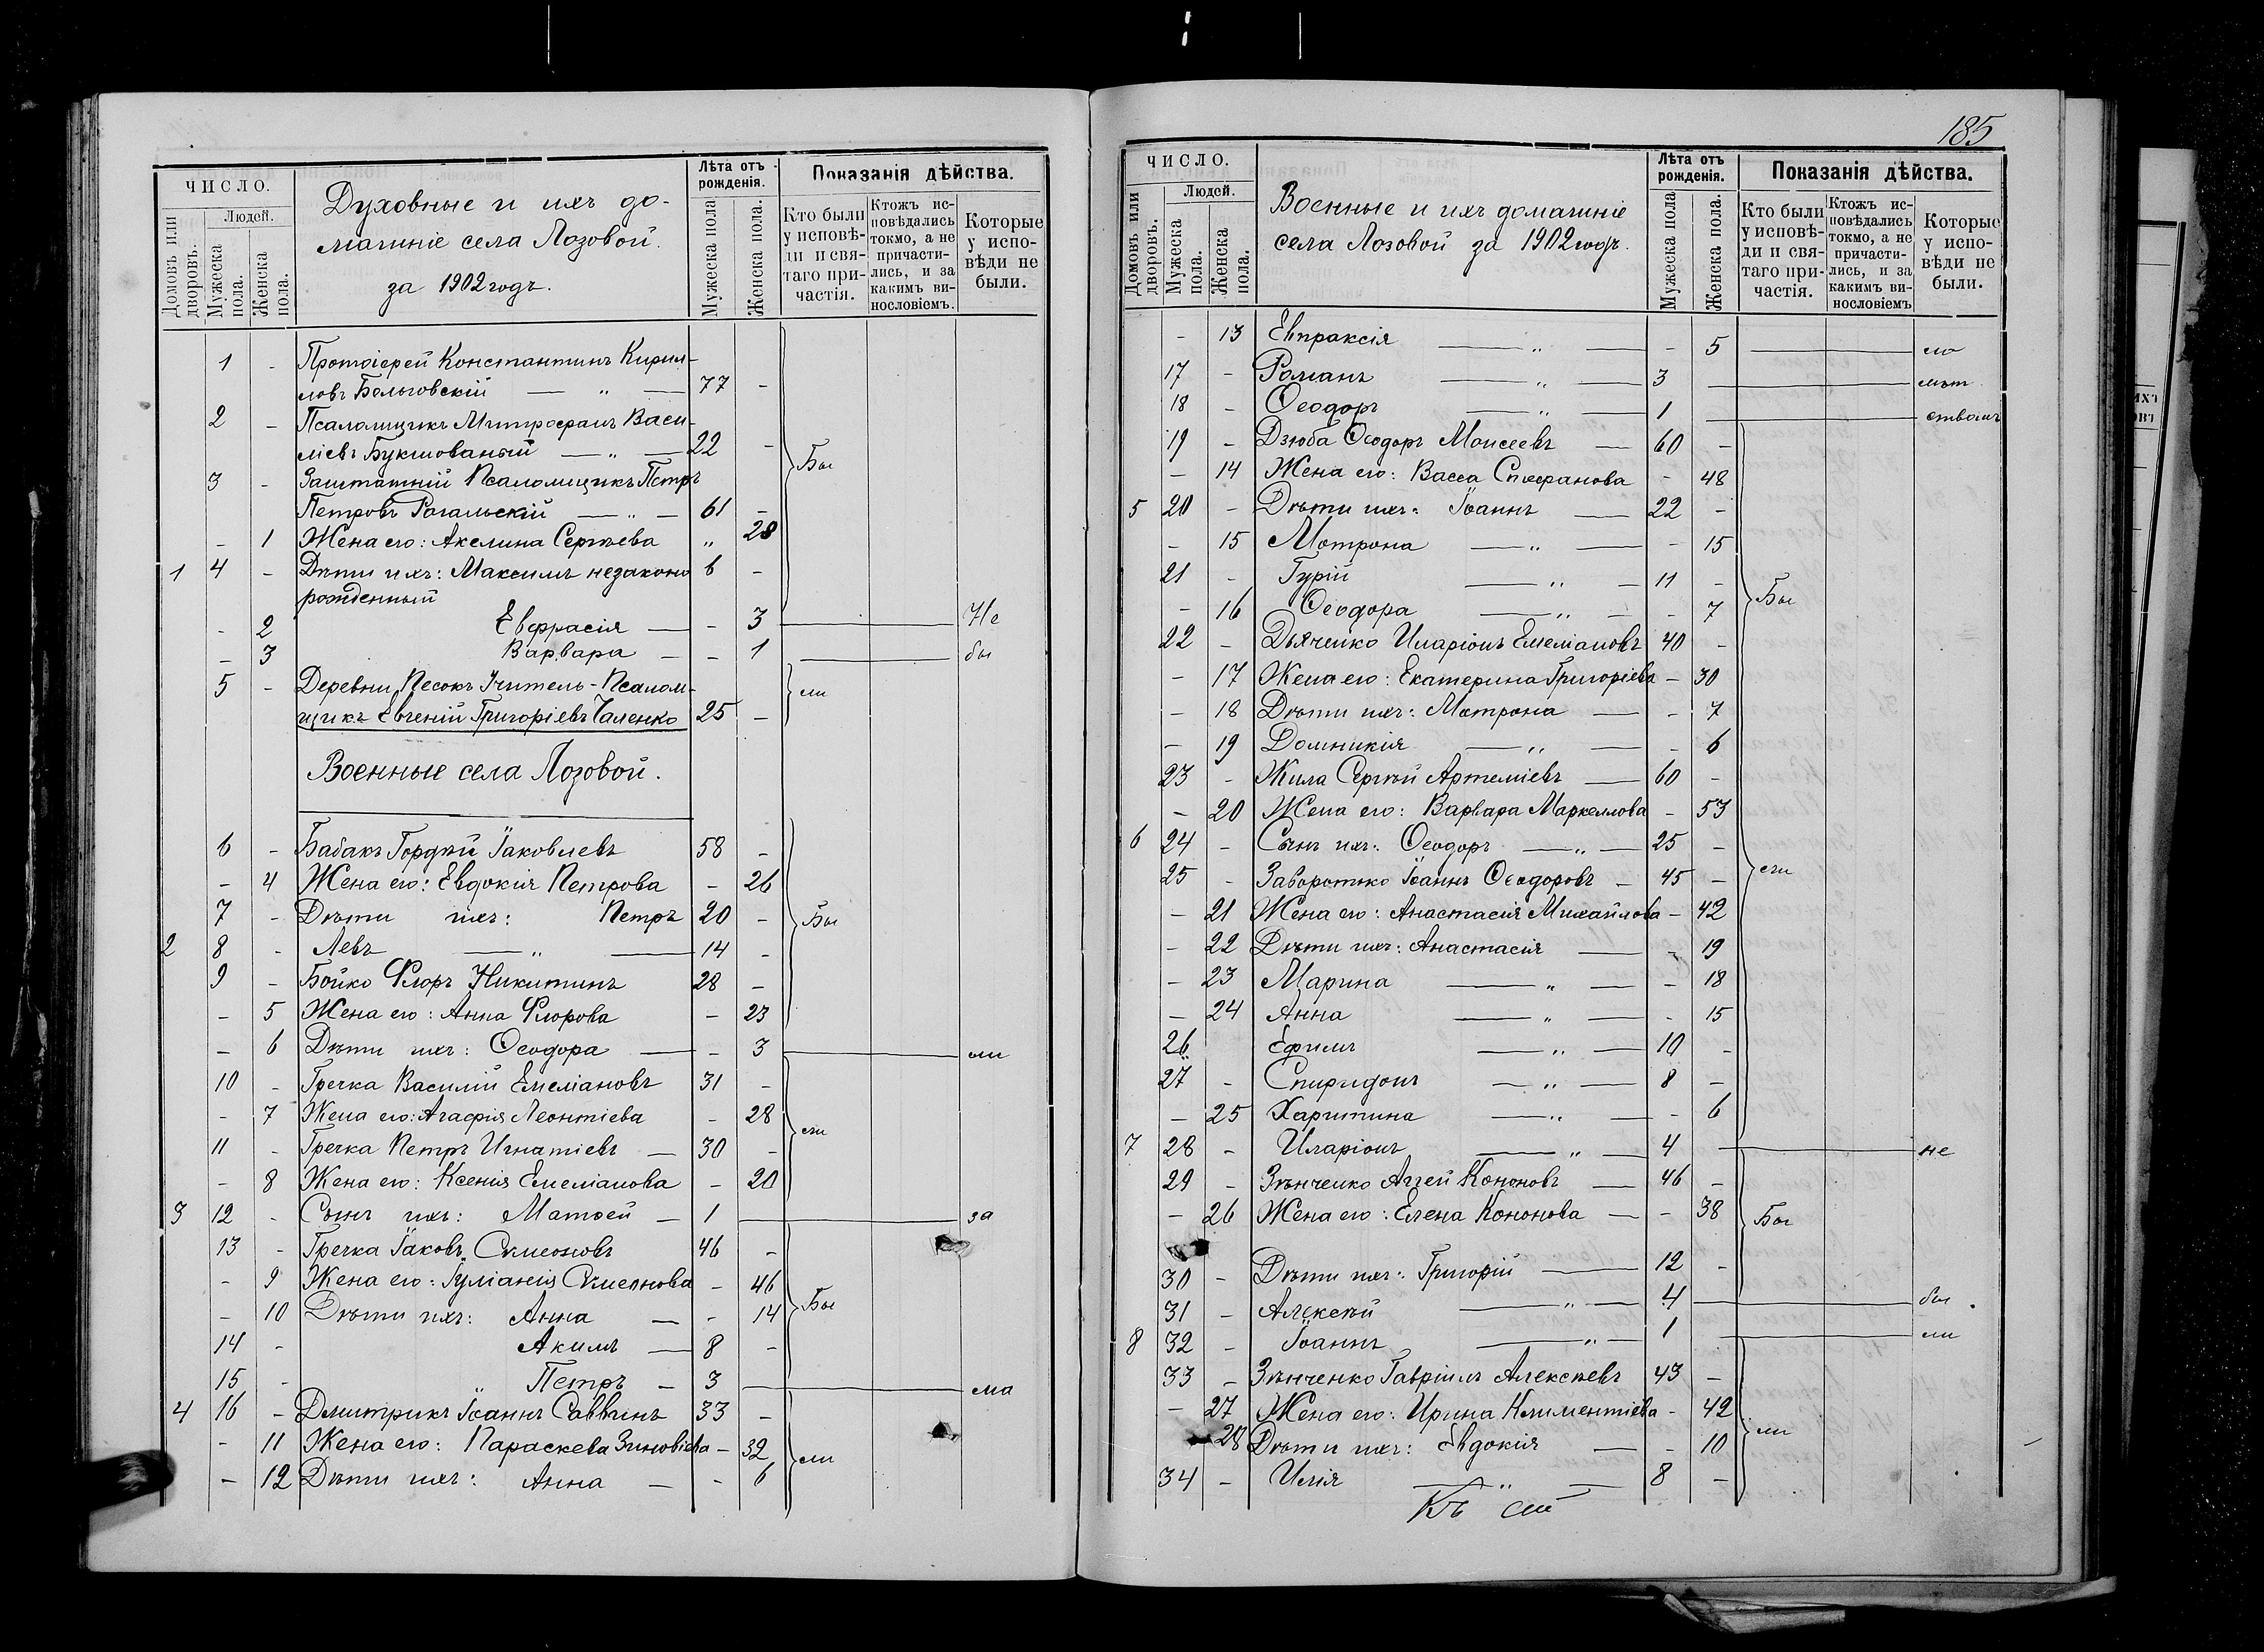 ЧИСЛО.
Домовъ или дворовъ.
Людей.
Мужеска пола.
Женска пола.
Духовные и ихъ до-
машніе села Лозовой.
за 1902 годъ.
Лѣта отъ рожденія.
Мужеска пола
Женска пола.
Показанія дѣйства.
Кто были у исповѣ-ди и свя-таго при-частія.
Ктожъ ис-повѣдались токмо, а не причасти-лись, и за какимъ ви-нословіемъ.
Которые у испо-вѣди не были.
1 - Протоіерей Константинъ Кирил-
ловъ — „ — 77 -
2 - Псаломщикъ Митрофанъ Васи-
ліевъ Букшованый — „ — 22 - Бы
3 - Заштатній Псаломщикъ Петръ
Петровъ Рогальскій — „ — 61 -
- 1 Жена его: Акелина Сергѣева „ 28
1 4 - Дѣти ихъ: Максимъ незаконо 6 -
рожденный
- 2 Евфрасія — - 3 Не
- 3 Варвара — - 1 бы
5 - Деревни Песокъ Учитель-Псалом-
щикъ Евгеній Григоріевъ Галенко 25 - ли
Военные села Лозовой.
6 - Бабакъ Гордѣй Іаковлевъ 58 -
- 4 Жена его: Евдокія Петрова - 26
7 - Дѣти ихъ: Петръ 20 - Бы
2 8 - Левъ — „ — 14 -
9 - Бойко Флоръ Никитинъ 28 -
- 5 Жена его: Анна Флорова - 23
- 6 Дѣти ихъ: Ѳеодора — - 3 ли
10 - Гречка Василій Емеліановъ 31 -
- 7 Жена его: Агафія Леонтіева - 28
11 - Гречка Петръ Игнатіевъ — 30 -
- 8 Жена его: Ксенія Емеліанова - 20
3 12 - Сынъ ихъ: Матѳей — 1 за
13 - Гречка Іаковъ Симеоновъ 46 -
- 9 Жена его: Іуліанія Симеонова - 46
- 10 Дѣти ихъ: Анна — - 14 Бы
14 - Акимъ — 8 -
15 - Петръ — 3 ма
4 16 - Дмитрикъ Іоаннъ Саввинъ 33 -
- 11 Жена его: Параскева Зиновіева - 32 ли
- 12 Дѣти ихъ: Анна — - 6
185
ЧИСЛО.
Домовъ или дворовъ.
Людей.
Мужеска пола.
Женска пола.
Военные и ихъ домашніе
села Лозовой за 1902 годъ.
Лѣта отъ рожденія.
Мужеска пола
Женска пола.
Показанія дѣйства.
Кто были у исповѣ-ди и свя-таго при-частія.
Ктожъ ис-повѣдались токмо, а не причасти-лись, и за какимъ ви-нословіемъ
Которые у испо-вѣди не были.
- 13 Евпраксія — „ — - 5 ло
17 - Романъ — „ — 3 лѣт
18 - Ѳеодоръ — „ — 1 ствомъ
19 - Дзюба Ѳеодоръ Моисеевъ — 60 -
- 14 Жена его: Васса Стефанова - 48
5 20 - Дѣти ихъ: Іоаннъ — 22 -
- 15 Мотрона — „ — - 15
21 - Гурій — „ — 11 -
- 16 Ѳеодора — „ — - 7 Бы
22 - Дьяченко Иларіонъ Емеліановъ 40 -
- 17 Жена его: Екатерина Григоріева - 30
- 18 Дѣти ихъ: Мотрона — - 7
- 19 Домникія — „ — - 6
23 - Жила Сергѣй Артеміевъ — 60 -
- 20 Жена его: Варвара Маркеллова - 53
6 24 - Сынъ ихъ: Ѳеодоръ — „ — 25 -
25 - Заворотько Іоаннъ Ѳеодоровъ — 45 -
- 21 Жена его: Анастасія Михайлова - 42
- 22 Дѣти ихъ: Анастасія — - 19
- 23 Марина — „ — - 18
- 24 Анна — „ — - 15
26 Ефимъ — „ — 10 -
27 - Спиридонъ — „ — 8 -
- 25 Харитина — „ — - 6
7 28 - Иларіонъ — „ — 4 не
29 - Зѣнченко Аггей Кононовъ — 46 -
- 26 Жена его: Елена Кононова — - 38 Бы
30 - Дѣти ихъ: Григорій — 12 -
31 - Алексѣй — „ — 4 бы
8 32 - Іоаннъ — „ — 1 ли
33 - Зѣнченко Гавріилъ Алексѣевъ 43 -
- 27 Жена его: Ирина Климентіева - 42
- 28 Дѣти ихъ: Евдокія — - 10 ли
34 - Илія — „ — 8 -